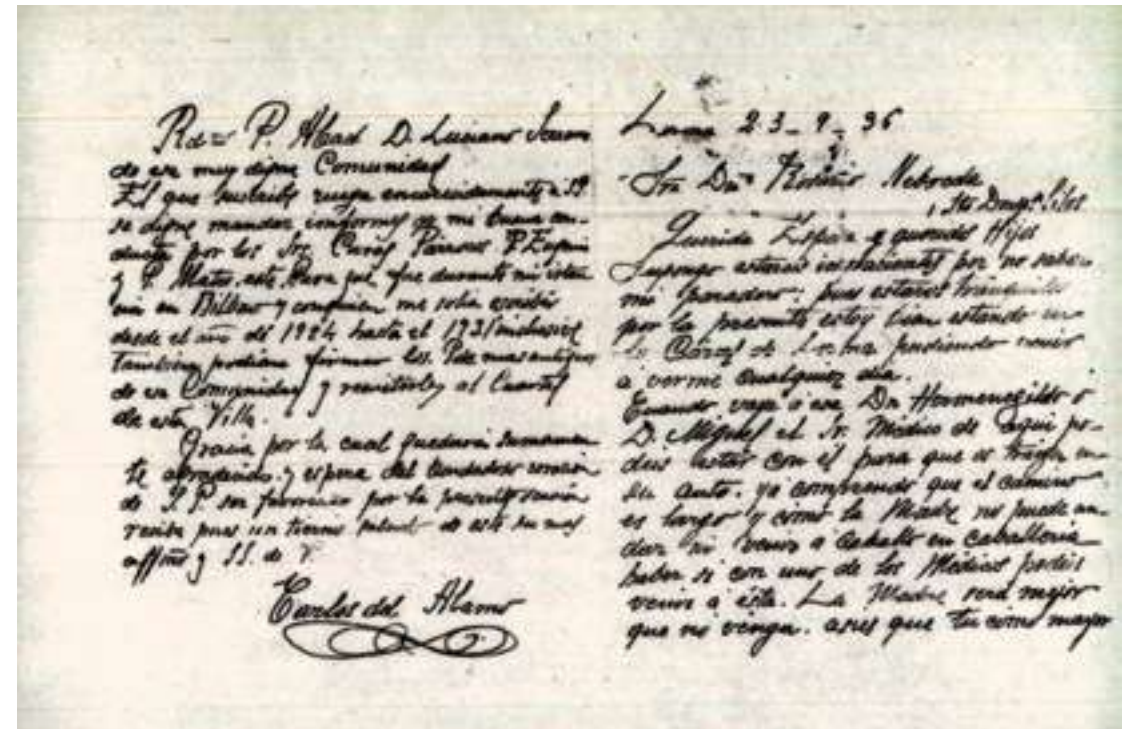 Rdo P. Abad D. Luciano
de esa muy digna Comunidad
El que suscribe ruega encarecidamente a
se digne mandar informes de mi buena con-
ducta por los Srs. Curas Párrocos P.
y P. Mateo, este, para que fue durante mi estan-
cia en Bilbao y con quien me solia escribir
desde el año de 1924 hasta el 1931 inclusive
tambien podian firmar los P. de mas antiguos
de esa Comunidad y remitirles al Cuartel
de esta Villa.
Gracia por la cual quedaria sumamen
te agradecido y espera del bondadoso corazon
de S. P. ser favorecido por la presente
reciba pues un tierno de este su mas
affmo y SS. de V.
Carlos del Alamo
Lerma 23-9-36
Sra Dña Rosario Nebreda
Sto Domgo Silos
Querida Espsa y queridos Hijos
Supongo estareis impacientes por no saber
mi paradero: pues estaros tranquilos
por la presente estoy bien estando en
la Carcel de Lerma pudiendo venir
a verme cualquier dia.
Cuando vaya a esa Dn Hermenegildo o
D. Miguel el Sr. Medico de aqui po-
deis estar con el para que os traiga en
su auto. yo comprendo que el camino
es largo y como la Madre no puede an-
dar ni venir a caballo en caballeria
haber si con uno de los Médicos podeis
venir a ésta. La Madre será mejor
que no venga. asies que tu como mayor